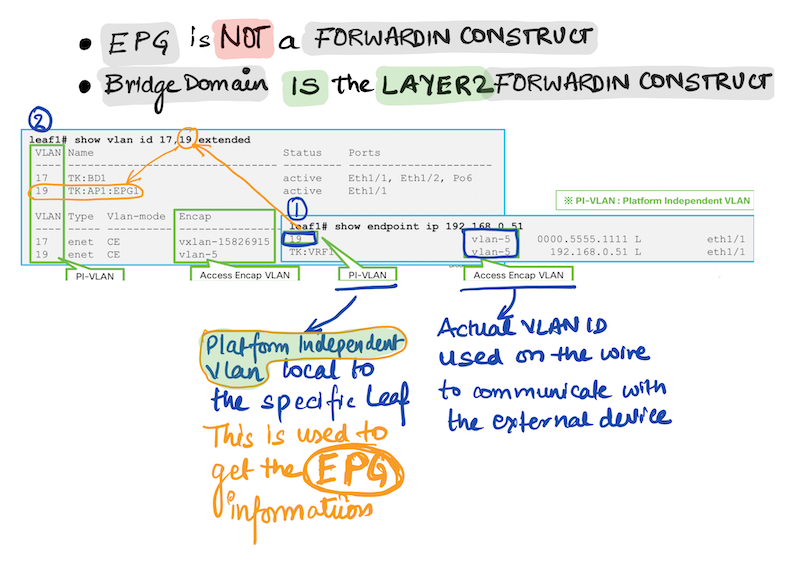 • EPG is NOT a FORWARDIN CONSTRUCT
• Bridge Domain IS the LAYER2 FORWARDIN CONSTRUCT
2
leaf1# show vlan id 17,19 extended
VLAN Name Status Ports
17 TK:BD1 active Eth1/1, Eth1/2, Po6
19 TK:AP1:EPG1 active Eth1/1
※ PI-VLAN : Platform Independent VLAN
VLAN Type Vlan-mode Encap
17 enet CE vxlan-15826915
19 enet CE vlan-5
PI-VLAN
Access Encap VLAN
1
leaf1# show endpoint ip 192.168.0.51
19 vlan-5 0000.5555.1111 L eth1/1
TK:VRF1 vlan-5 192.168.0.51 L eth1/1
PI-VLAN
Access Encap VLAN
Platform Independent
Vlan local to
the specific Leaf
This is used to
get the EPG
informations
Actual VLAN ID
used on the wire
to communicate with
the external device